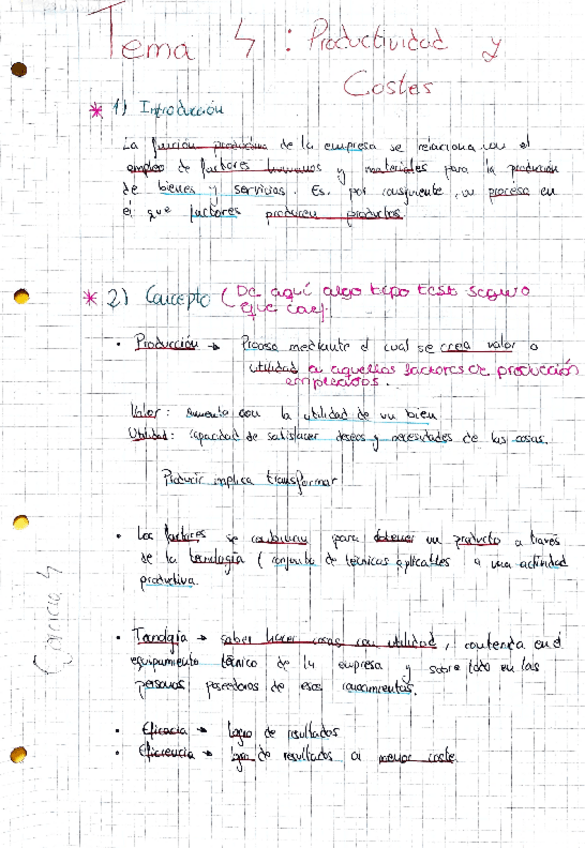 Tema 4 : Productividad y
Costes
* 1) Introducción
La función productiva de la empresa se relaciona con el
empleo de factores humanos y materiales para la producción
de bienes y servicios. Es, por consiguiente, un proceso en
el que factores producen productos.
* 2) Concepto (De aquí algo tipo test seguro
que cae).
• Producción → Proceso mediante el cual se crea valor o
utilidad a aquellos factores de producción
empleados.
Valor: aumenta con la utilidad de un bien
Utilidad: capacidad de satisfacer deseos y necesidades de las cosas.
Producir implica transformar
• Los factores se combinan para obtener un producto a través
de la tecnología (conjunto de técnicas aplicables a una actividad
productiva.
• Tecnolgía → saber hacer cosas con utilidad, contenida en el
equipamiento técnico de la empresa y sobre todo en las
personas poseedoras de esos conocimientos.
• Eficacia → logro de resultados
• Eficiencia → logro de resultados al menor coste